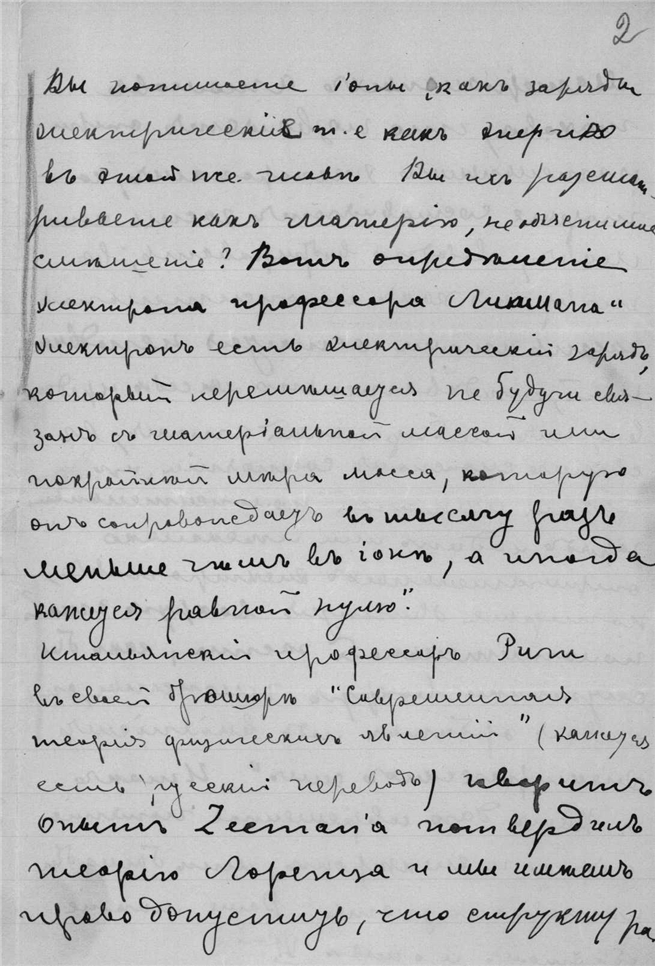 2
Вы понимаете іоны, какъ заряды
электрическіе т.е какъ энергію
въ этой же главѣ Вы ихъ разсмат-
риваете какъ матерію, необъяснимое
смѣшеніе? Вотъ опредѣленіе
электрона профессора Липмана "
Электронъ есть электрическій зарядъ,
который перемѣщается не будучи свя-
занъ съ матеріальной массой или
покрайней мѣрѣ масса, которую
онъ сопровождаетъ въ тысячу разъ
меньше чѣмъ въ іонѣ, а иногда
кажется равной нулю".
Итальянскій профессоръ Риги
въ своей брошюрѣ "Современная
теорія физическихъ явленій" (кажется
есть русскій переводъ) говоритъ
Опытъ Zeeman'а потвердилъ
теорію Лоренца и мы имѣемъ
право допустить, что структура